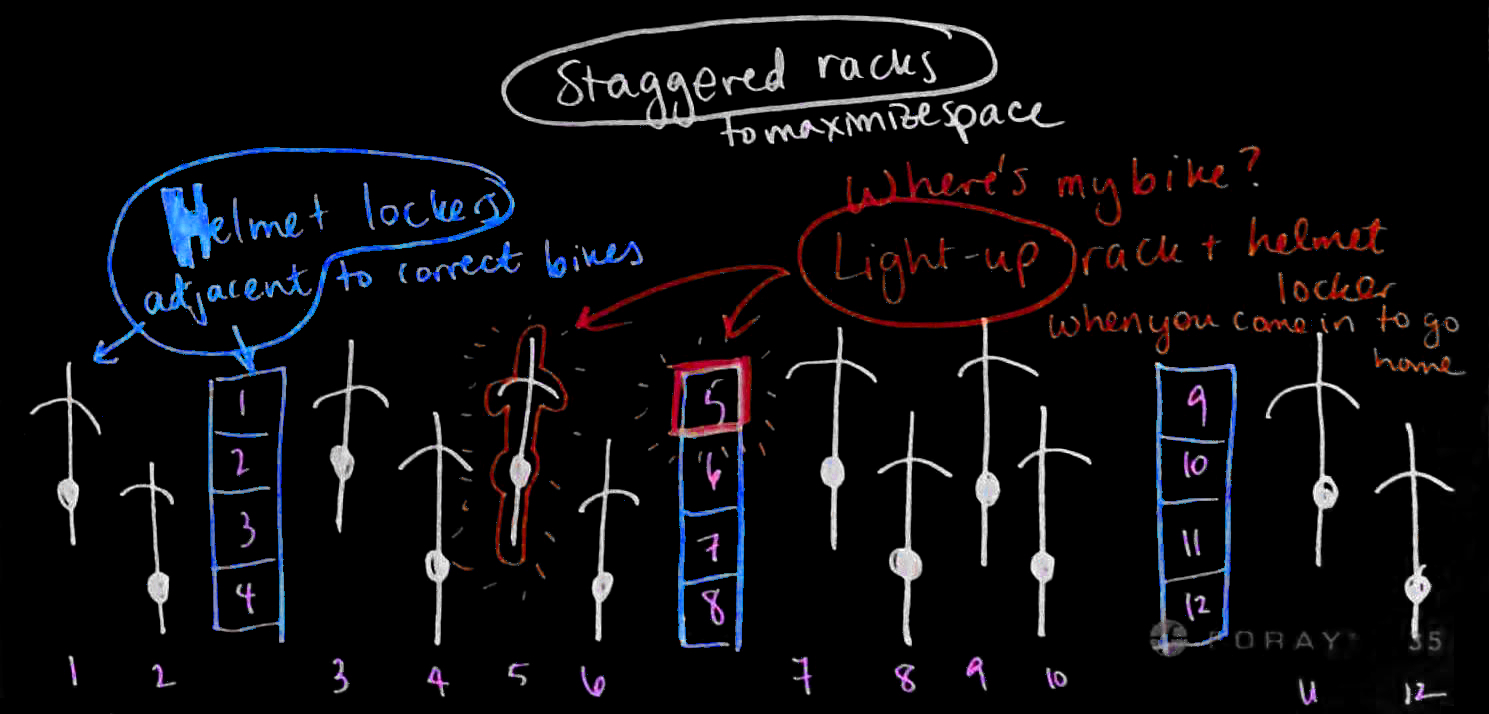 Staggered racks
to maximize space
Helmet lockers
adjacent to correct bikes
Where's my bike?
Light-up rack + helmet
locker
when you come in to go
home
1
2
3
4
5
6
7
8
9
10
11
12
FORAY 35
1 2 3 4 5 6 7 8 9 10 11 12